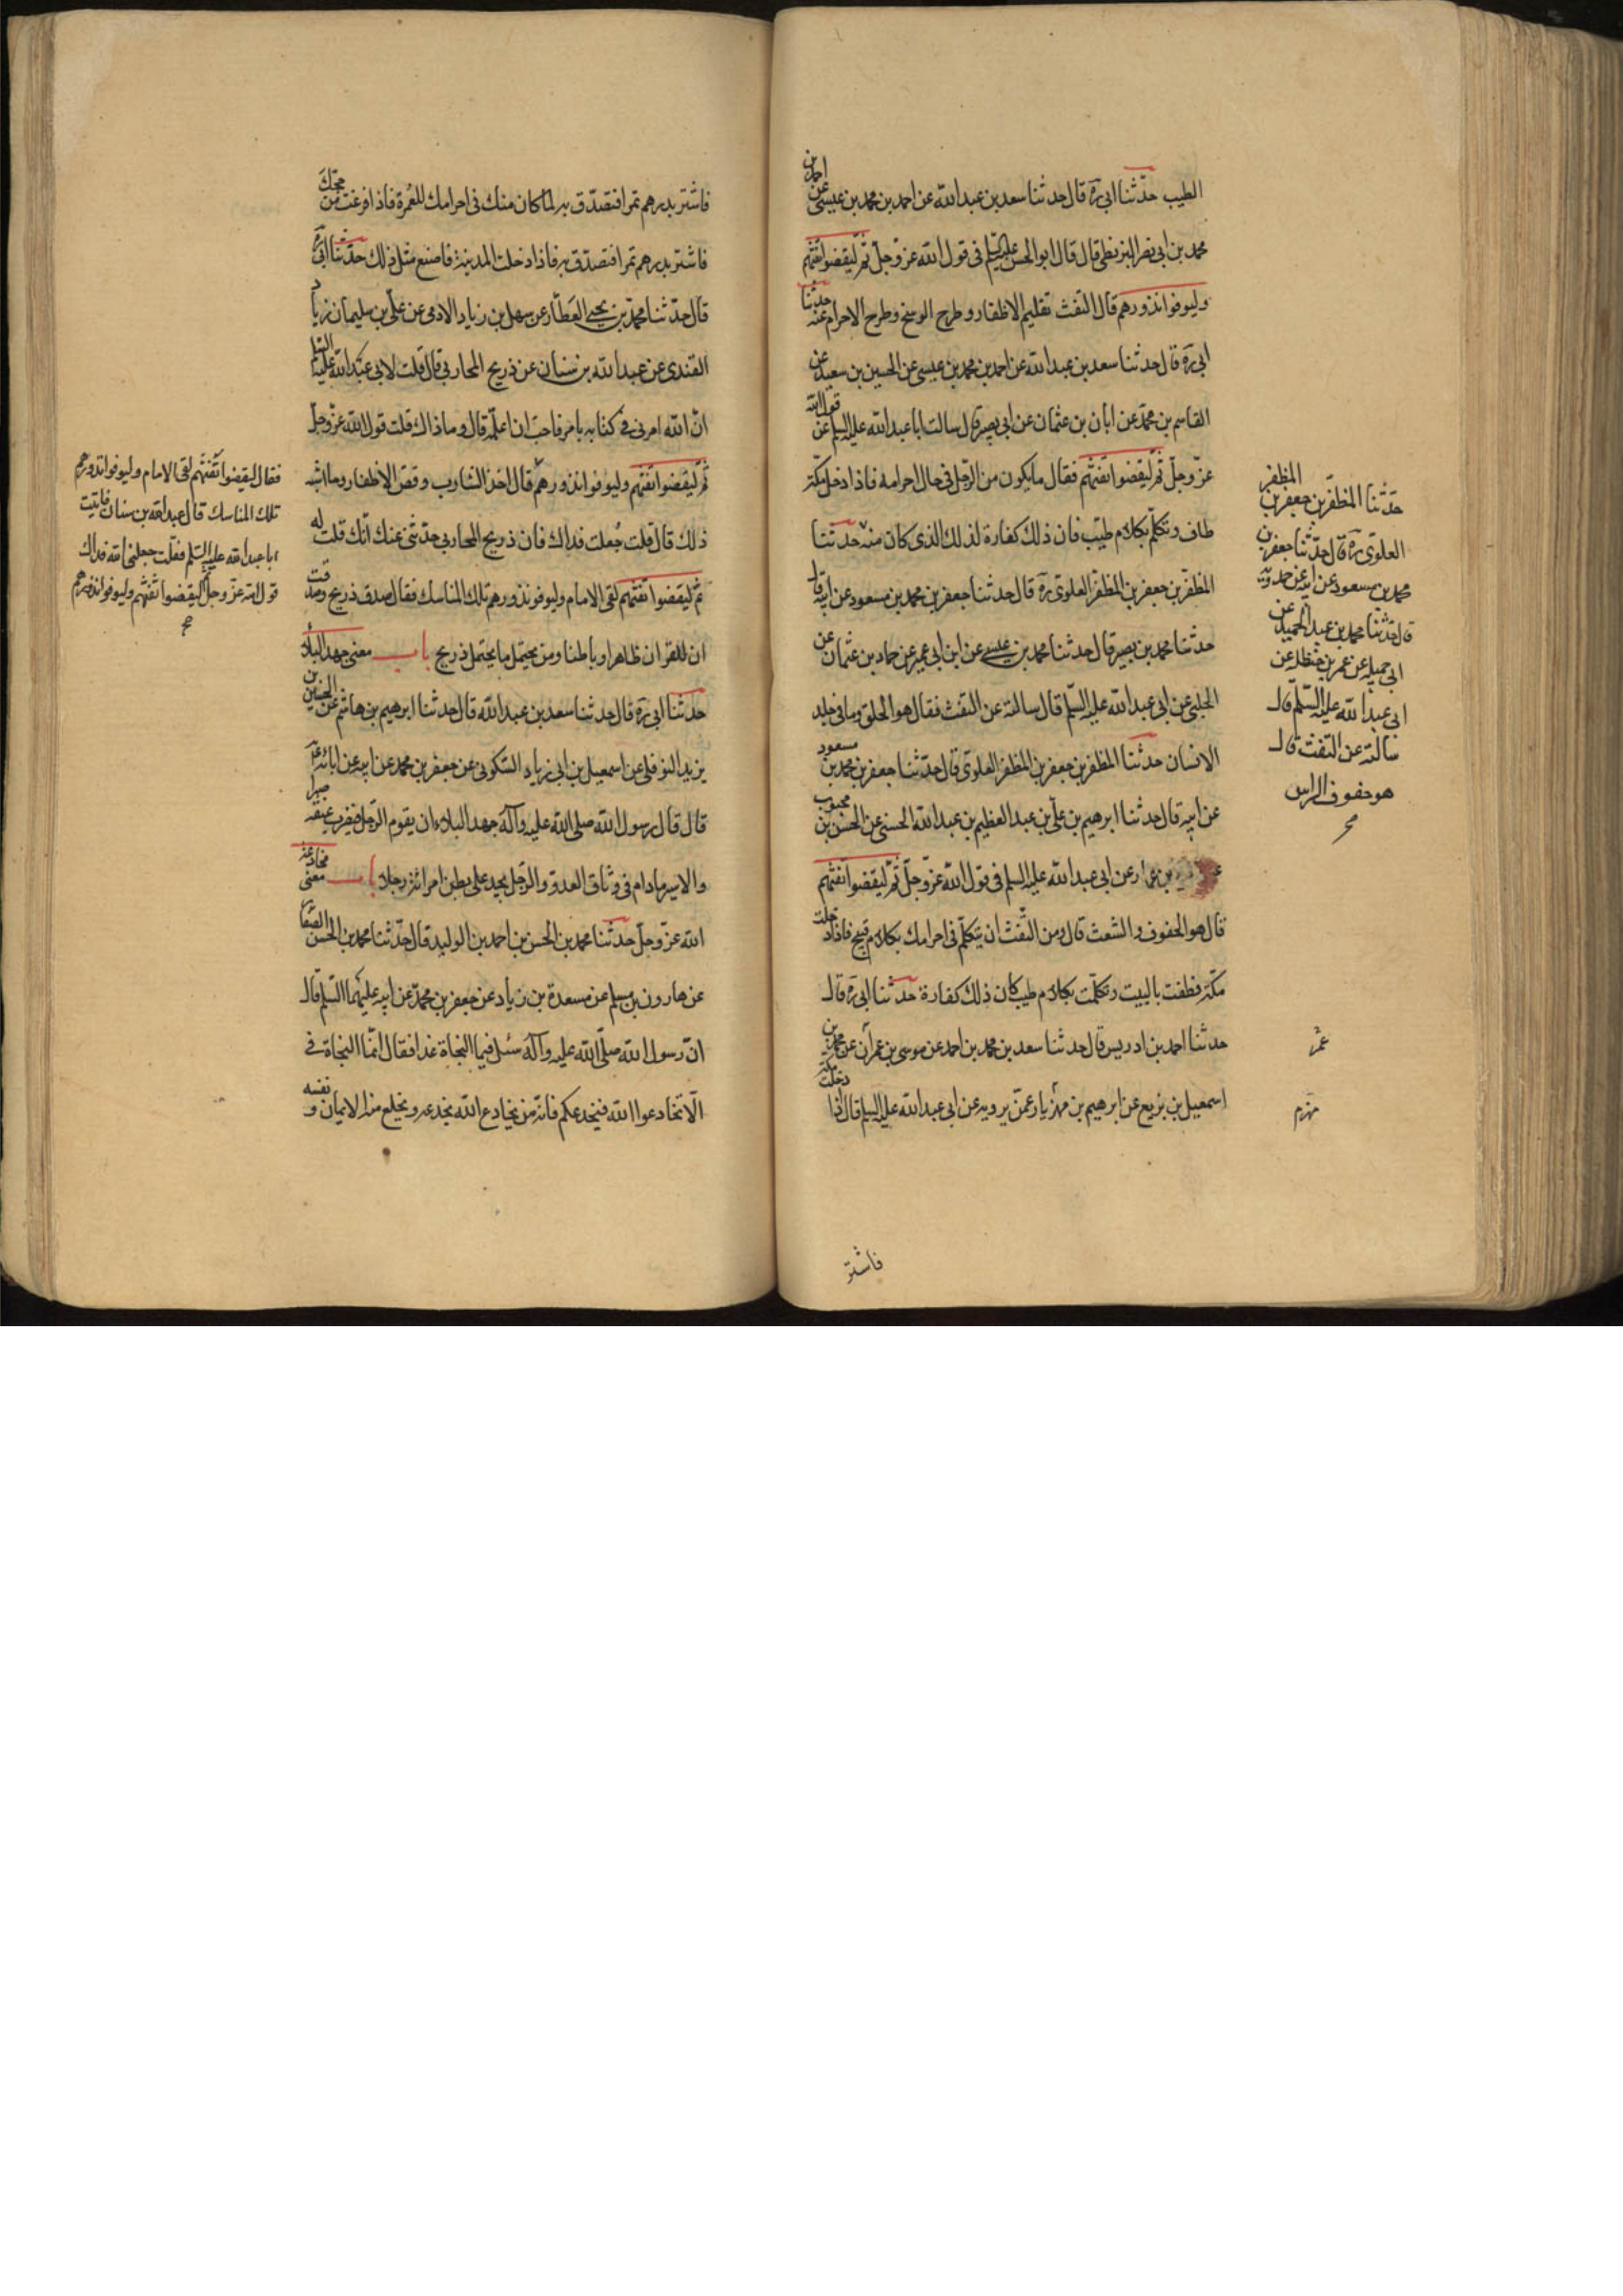 الطيب حدّثنا ابي ره قال حدثنا سعد بن عبد الله عن احمد بن محمد بن عيسى عن احمد بن
محمد بن ابي نصر البزنطي قال قال ابو الحسن عليه السلم في قول الله عز وجل ثم ليقضوا تفثهم
وليوفوا نذورهم قال التفث تقليم الاظفار وطرح الوسخ وطرح الاحرام عنه حدثنا
ابي ره قال حدثنا سعد بن عبد الله عن احمد بن محمد بن عيسى عن الحسين بن سعيد عن
القاسم بن محمد عن ابان بن عثمان عن ابي بصير قال سالت ابا عبد الله عليه السلم عن قول الله
عز وجل ثم ليقضوا تفثهم فقال ما يكون من الرجل في حال احرامه فاذا دخل مكة
طاف وتكلم بكلام طيب فان ذلك كفارة لذلك الذي كان منه حدثنا
المظفر بن جعفر بن المظفر العلوي ره قال حدثنا جعفر بن محمد بن مسعود عن ابيه قال
حدثنا محمد بن بصير قال حدثنا محمد بن عيسى عن ابن ابي عمير عن حماد بن عثمان عن
الحلبي عن ابي عبد الله عليه السلم قال سالته عن التفث فقال هو الحلق وما في جلد
الانسان حدثنا المظفر بن جعفر بن المظفر العلوي قال حدثنا جعفر بن محمد بن مسعود
عن ابيه قال حدثنا ابرهيم بن علي بن عبد العظيم بن عبد الله الحسني عن الحسن بن محبوب
عن ابي عبد الله عليه السلم في قول الله عز وجل ثم ليقضوا تفثهم
قال هو الحفوف والشعث قال ومن التفث ان يتكلم في احرامك بكلام قبيح فاذا دخلت
مكة فطفت بالبيت وتكلمت بكلام طيب كان ذلك كفارة حدثنا ابي ره قال
حدثنا احمد بن ادريس قال حدثنا سعد بن محمد بن احمد عن موسى بن عمران عن محمد بن
اسمعيل بن بزيع عن ابرهيم بن مهزيار عمن يرويه عن ابي عبد الله عليه السلم قال اذا دخلت مكة
حدثنا المظفر بن جعفر بن المظفر
العلوي ره قال حدثنا جعفر بن
محمد بن مسعود عن ابيه عن حمدويه
قال حدثنا محمد بن عبد الحميد عن
ابي جميله عن عمر بن حنظله عن
ابي عبد الله عليه السلم قال
سالته عن التفث قال
هو حفوف الراس
عمر
مهزم
فاشتر
فاشتر بدرهم تمرا فتصدق به لما كان منك في احرامك للعمرة فاذا فرغت من حجك
فاشتر بدرهم تمرا فتصدق به فاذا دخلت المدينة فاصنع مثل ذلك حدثنا ابي ره
قال حدثنا محمد بن يحيى العطار عن سهل بن زياد الادمي عن علي بن سليمان زياد
القندي عن عبد الله بن سنان عن ذريح المحاربي قال قلت لابي عبد الله عليه السلم
ان الله امرني في كتابه بامر فاحب ان اعلمه قال وما ذاك قلت قول الله عز وجل
ثم ليقضوا تفثهم وليوفوا نذورهم قال اخذ الشارب وقص الاظفار وما اشبه
ذلك قال قلت جعلت فداك فان ذريح المحاربي حدثني عنك انك قلت له
ثم ليقضوا تفثهم لقى الامام وليوفوا نذورهم تلك المناسك فقال صدق ذريح وصدقت
ان للقران ظاهرا وباطنا ومن يحتمل ما يحتمل ذريح باب معنى جهد البلاء
حدثنا ابي ره قال حدثنا سعد بن عبد الله قال حدثنا ابرهيم بن هاشم عن الحسين بن
يزيد النوفلي عن اسمعيل بن ابي زياد السكوني عن جعفر بن محمد عن ابيه عن ابائه ع
قال قال رسول الله صلى الله عليه وآله جهد البلاء ان يقوم الرجل فيضرب عنقه صبرا
والاسير مادام في وثاق العدو والرجل يجد على بطن امراته رجلا باب معنى مخادعة
الله عز وجل حدثنا محمد بن الحسن بن احمد بن الوليد قال حدثنا محمد بن الحسن الصفار
عن هارون بن مسلم عن مسعدة بن زياد عن جعفر بن محمد عن ابيه عليهما السلم قال
ان رسول الله صلى الله عليه وآله سئل فيما النجاة غدا فقال انما النجاة في
الا تخادعوا الله فيخدعكم فانه من يخادع الله يخدعه ويخلع منه الايمان و نفسه
فقال ليقضوا تفثهم لقى الامام وليوفوا نذورهم
تلك المناسك قال عبد الله بن سنان فاتيت
ابا عبد الله عليه السلم فقلت جعلني الله فداك
قول الله عز وجل ليقضوا تفثهم وليوفوا نذورهم